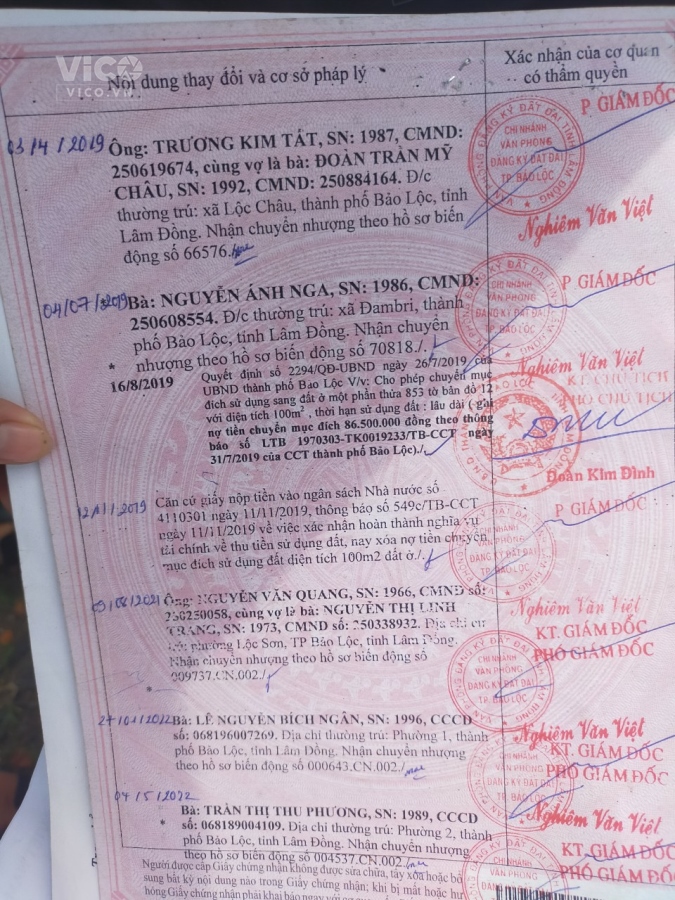 ViCO
VICO.VN
Nội dung thay đổi và cơ sở pháp lý
Xác nhận của cơ quan
có thẩm quyền
03/4/2019 Ông: TRƯƠNG KIM TẤT, SN: 1987, CMND:
250619674, cùng vợ là bà: ĐOÀN TRẦN MỸ
CHÂU, SN: 1992, CMND: 250884164. Đ/c
thường trú: xã Lộc Châu, thành phố Bảo Lộc, tỉnh
Lâm Đồng. Nhận chuyển nhượng theo hồ sơ biến
động số 66576./.
P. GIÁM ĐỐC
CHI NHÁNH
VĂN PHÒNG
ĐĂNG KÝ ĐẤT ĐAI
TP. BẢO LỘC
VĂN PHÒNG ĐĂNG KÝ ĐẤT ĐAI TỈNH LÂM ĐỒNG
Nghiêm Văn Việt
04/07/2019 Bà: NGUYỄN ÁNH NGA, SN: 1986, CMND:
250608554. Đ/c thường trú: xã Đambri, thành
phố Bảo Lộc, tỉnh Lâm Đồng. Nhận chuyển
nhượng theo hồ sơ biến động số 70818./.
P. GIÁM ĐỐC
CHI NHÁNH
VĂN PHÒNG
ĐĂNG KÝ ĐẤT ĐAI
TP. BẢO LỘC
Nghiêm Văn Việt
* 16/8/2019 Quyết định số 2294/QĐ-UBND ngày 26/7/2019 của
UBND thành phố Bảo Lộc V/v: Cho phép chuyển mục
đích sử dụng sang đất ở một phần thửa 853 tờ bản đồ 12
với diện tích 100m², thời hạn sử dụng đất : lâu dài ( ghi
nợ tiền chuyển mục đích 86.500.000 đồng theo thông
báo số LTB 1970303-TK0019233/TB-CCT ngày
31/7/2019 của CCT thành phố Bảo Lộc)./.
KT. CHỦ TỊCH
PHÓ CHỦ TỊCH
Đoàn Kim Đình
12/11/2019 Căn cứ giấy nộp tiền vào ngân sách Nhà nước số
4110301 ngày 11/11/2019, thông báo số 549c/TB-CCT
ngày 11/11/2019 về việc xác nhận hoàn thành nghĩa vụ
tài chính về thu tiền sử dụng đất, nay xóa nợ tiền chuyển
mục đích sử dụng đất diện tích 100m2 đất ở./.
P. GIÁM ĐỐC
CHI NHÁNH
VĂN PHÒNG
ĐĂNG KÝ ĐẤT ĐAI
TP. BẢO LỘC
Nghiêm Văn Việt
Ông: NGUYỄN VĂN QUANG, SN: 1966, CMND số:
cùng vợ là bà: NGUYỄN THỊ LINH
TRANG, SN: 1973, CMND số: 250338932. Địa chỉ cư
trú: phường Lộc Sơn, TP Bảo Lộc, tỉnh Lâm Đồng.
Nhận chuyển nhượng theo hồ sơ biến động số
009737.CN.002./.
KT. GIÁM ĐỐC
PHÓ GIÁM ĐỐC
CHI NHÁNH
VĂN PHÒNG
ĐĂNG KÝ ĐẤT ĐAI
TP. BẢO LỘC
Nghiêm Văn Việt
* 27/01/2022 Bà: LÊ NGUYỄN BÍCH NGÂN, SN: 1996, CCCD
số: 068196007269. Địa chỉ thường trú: Phường 1, thành
phố Bảo Lộc, tỉnh Lâm Đồng. Nhận chuyển nhượng
theo hồ sơ biến động số 000643.CN.002./.
KT. GIÁM ĐỐC
PHÓ GIÁM ĐỐC
CHI NHÁNH
VĂN PHÒNG
ĐĂNG KÝ ĐẤT ĐAI
TP. BẢO LỘC
Nghiêm Văn Việt
04/5/2022
* Bà: TRẦN THỊ THU PHƯƠNG, SN: 1989, CCCD
số: 068189004109. Địa chỉ thường trú: Phường 2, thành
phố Bảo Lộc, tỉnh Lâm Đồng. Nhận chuyển nhượng
theo hồ sơ biến động số 004537.CN.002./.
KT. GIÁM ĐỐC
PHÓ GIÁM ĐỐC
CHI NHÁNH
Người được cấp Giấy chứng nhận không được sửa chữa, tẩy xóa hoặc bổ
sung bất kỳ nội dung nào trong Giấy chứng nhận; khi bị mất hoặc hư
hỏng Giấy chứng nhận phải khai báo ngay với cơ